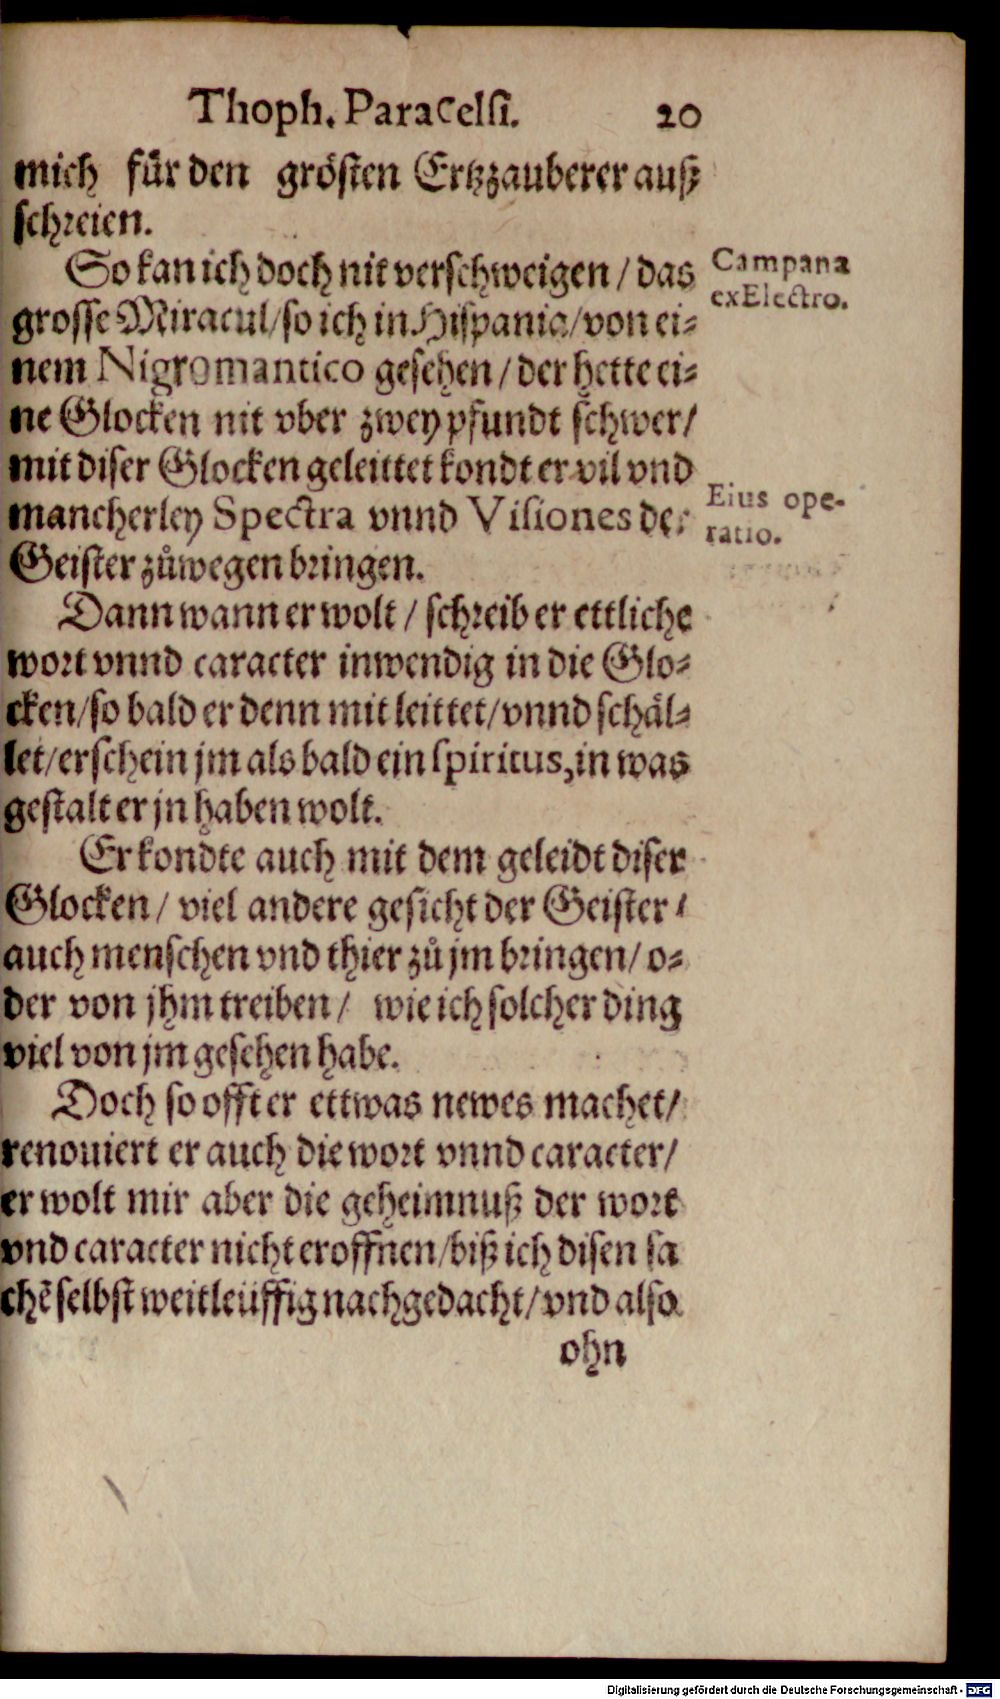 Thoph. Paracelsi. 20
mich für den grösten Ertzzauberer auß
schreien.
So kan ich doch nit verschweigen / das
Campana
ex Electro.
grosse Miracul / so ich in Hispania / von ei-
nem Nigromantico gesehen / der hette ei-
ne Glocken nit vber zwey pfundt schwer /
mit diser Glocken geleittet kondt er vil vnd
mancherley Spectra vnnd Visiones der
Eius ope-
ratio.
Geister zůwegen bringen.
Dann wann er wolt / schreib er ettliche
wort vnnd caracter inwendig in die Glo-
cken / so bald er denn mit leittet / vnnd schäl-
let / erschein jm als bald ein spiritus, in was
gestalt er jn haben wolt.
Er kondte auch mit dem geleidt diser
Glocken / viel andere gesicht der Geister /
auch menschen vnd thier zů jm bringen / o-
der von jhm treiben / wie ich solcher ding
viel von jm gesehen habe.
Doch so offt er ettwas newes machet /
renouiert er auch die wort vnnd caracter /
er wolt mir aber die geheimnuß der wort
vnd caracter nicht eroffnen / biß ich disen sa
chẽ selbst weitleüffig nachgedacht / vnd also
ohn
Digitalisierung gefördert durch die Deutsche Forschungsgemeinschaft - DFG